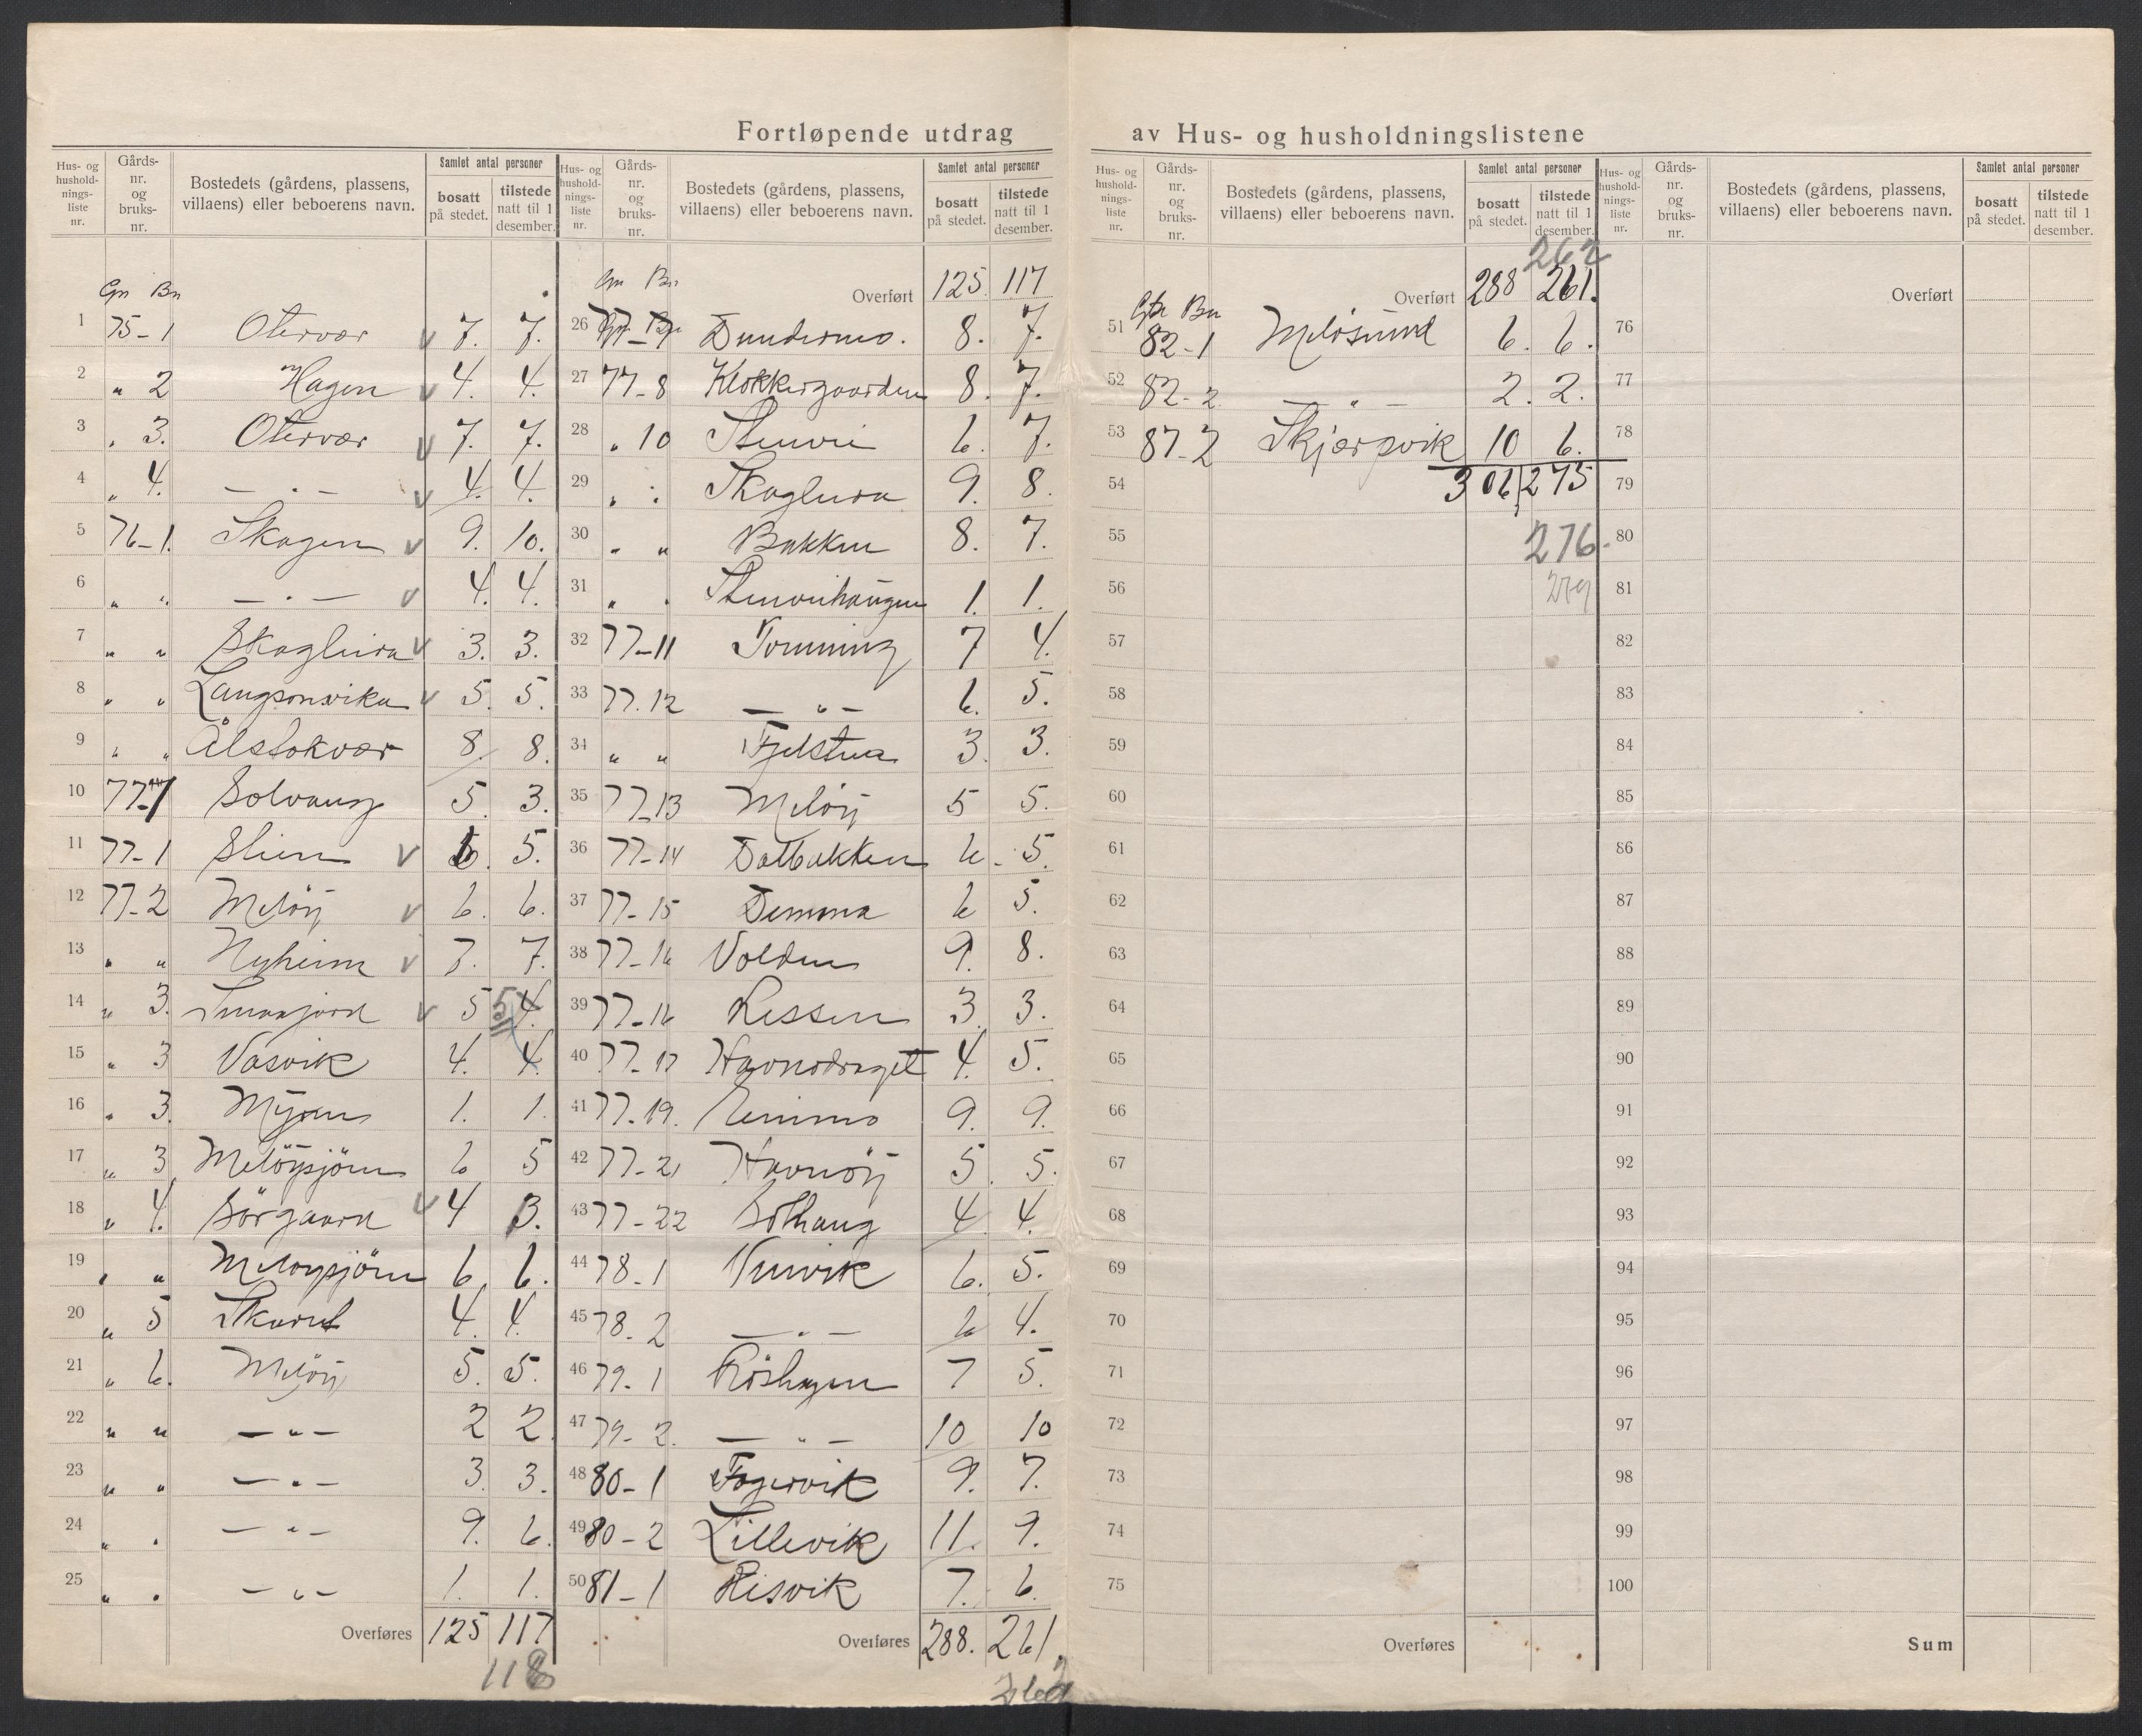 Fortløpende utdrag av Hus- og husholdningslistene
Hus- og hushold-nings-liste nr. Gårds-nr. og bruks-nr. Bostedets (gårdens, plassens, villaens) eller beboerens navn. Samlet antal personer bosatt på stedet. tilstede natt til 1 desember.
Gn Bn
1 75-1 Otervær v 7. 7.
2 " 2 Hagen v 4. 4.
3 " 3. Otervær v 7. 7.
4 " 4. — " — v 4. 4.
5 76-1. Skagen v 9. 10.
6 " " — " — v 4. 4.
7 " " Skoglura v 3. 3.
8 " " Langsonvika v 5. 5.
9 " " Ålstokvær 8. 8.
10 77-1 Solvang 5. 3.
11 77-1 v 6. 5.
12 77-2 Meløy v 6. 6.
13 " " Nyheim v 7. 7.
14 " 3. v 5 5 4.
15 " 3 Vasvik 4. 4.
16 " 3. Myren 1. 1.
17 " 3 Meløysjøen 6 5
18 " 4. Sørgaard v 4 3.
19 " " Meløysjøen 6. 6.
20 " 5 Skaret 4. 4.
21 " 6. Meløy 5. 5.
22 " " — " — 2 2.
23 " " — " — 3. 3.
24 " " — " — 9. 6.
25 " " — " — 1. 1.
Overføres 125 117
118
Hus- og hushold-nings-liste nr. Gårds-nr. og bruks-nr. Bostedets (gårdens, plassens, villaens) eller beboerens navn. Samlet antal personer bosatt på stedet. tilstede natt til 1 desember.
Gn Bn Overført 125. 117
26 77-7 Dundermo. 8. 7.
27 77-8 Klokkergaarden 8. 7.
28 " 10 Stenvie 6. 7.
29 " " Skoglura 9. 8.
30 " " Bakken 8. 7.
31 " " Stenviehaugen 1. 1.
32 77-11 7 4.
33 77.12 — " — 6. 5.
34 " " Fjelstua 3. 3.
35 77-13 Meløy 5 5.
36 77-14 Dalbakken 6. 5.
37 77-15 Demma 6 5.
38 77-16 Volden 9. 8.
39 77-16 Ressen 3. 3.
40 77-17 Havnodraget 4. 5.
41 77.19. 9. 9.
42 77-21 Havnøy 5. 5.
43 77-22 Solhaug 4. 4.
44 78.1 6. 5.
45 78.2 — " — 6 4.
46 79.1 Røshagen 7 5.
47 79-2. — " — 10 10
48 80-1 Fagervik 9. 7.
49 80-2 Lillevik 11. 9.
50 81-1 Risvik 7. 6.
Overføres 288. 261.
262
Hus- og hushold-nings-liste nr. Gårds-nr. og bruks-nr. Bostedets (gårdens, plassens, villaens) eller beboerens navn. Samlet antal personer bosatt på stedet. tilstede natt til 1 desember.
262
Gn Bn Overført 288 261.
51 82-1 Meløsund 6. 6.
52 82-2 — " — 2. 2.
53 87-2 Skjærpvik 10 6.
54 306 275
55 276
56 279
57
58
59
60
61
62
63
64
65
66
67
68
69
70
71
72
73
74
75
Overføres
Hus- og hushold-nings-liste nr. Gårds-nr. og bruks-nr. Bostedets (gårdens, plassens, villaens) eller beboerens navn. Samlet antal personer bosatt på stedet. tilstede natt til 1 desember.
Overført
76
77
78
79
80
81
82
83
84
85
86
87
88
89
90
91
92
93
94
95
96
97
98
99
100
Sum